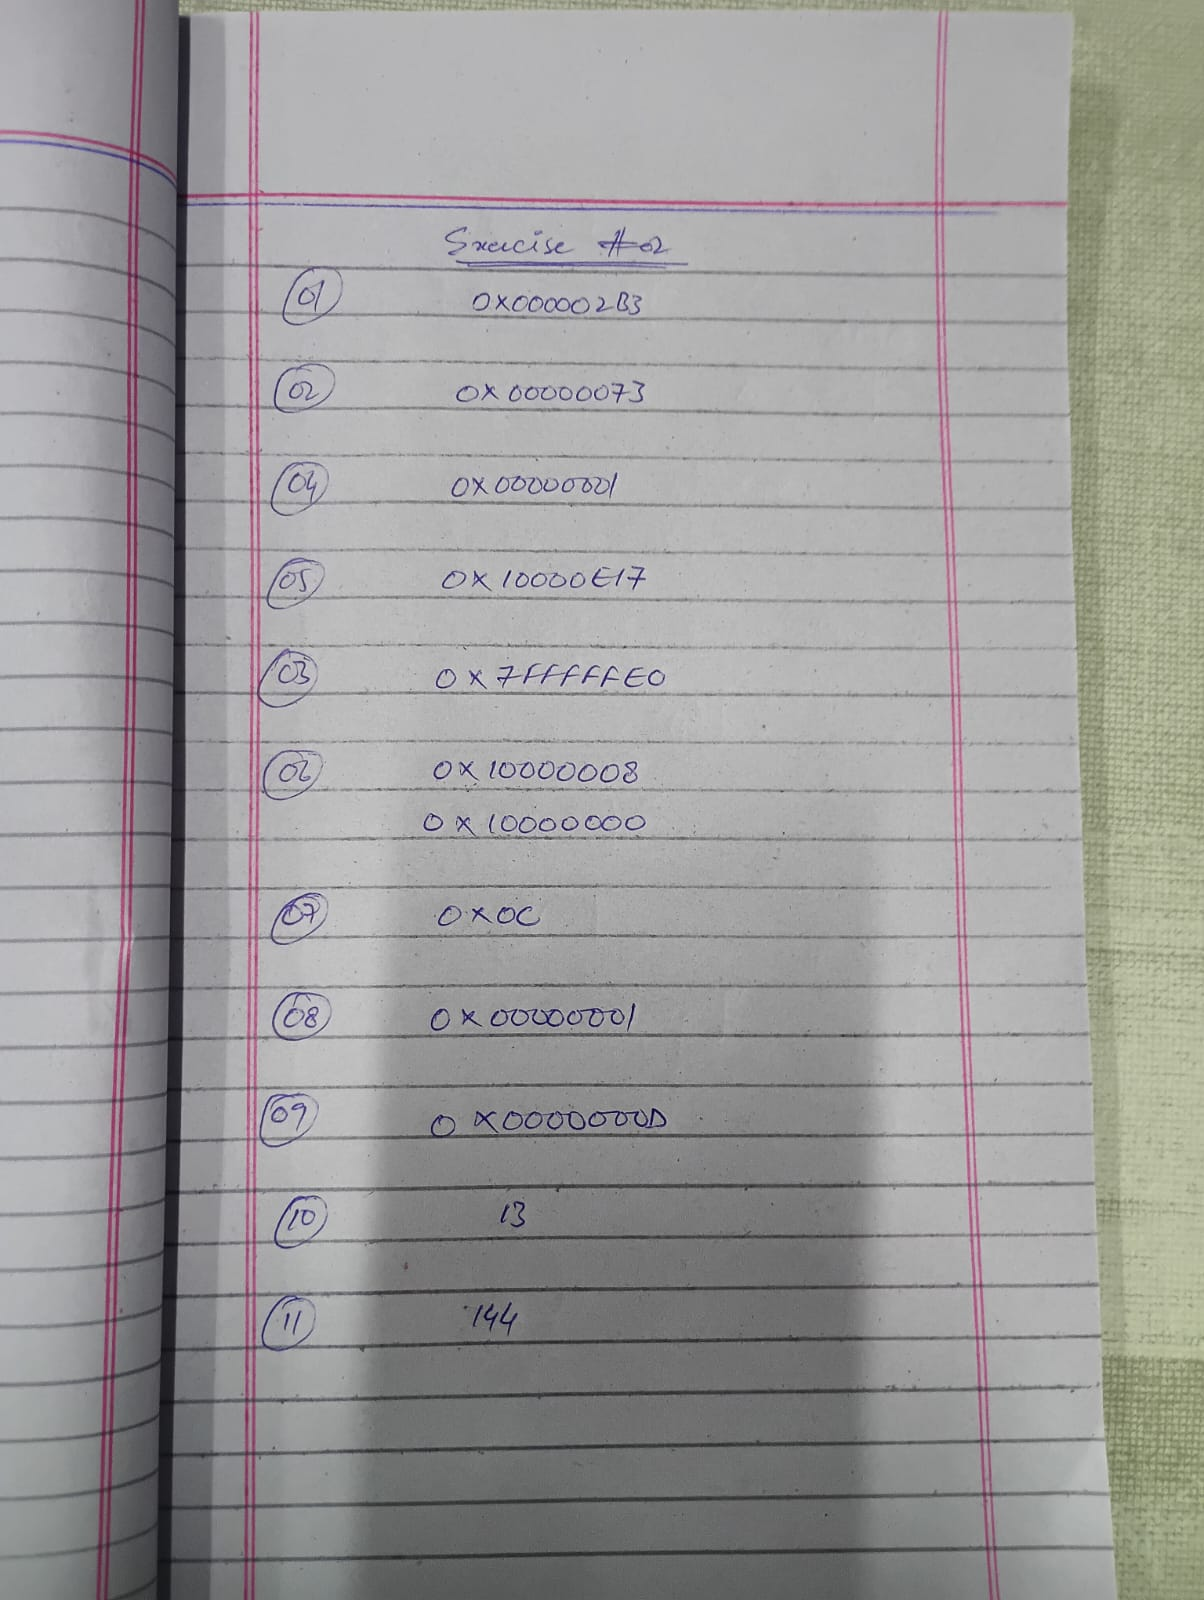 Exercise #02
01 0x000002B3
02 0x00000073
04 0x00000001
05 0x10000E17
03 0x7FFFFFE0
06 0x10000008
0x10000000
07 0x0C
08 0x00000001
09 0x0000000D
10 13
11 144